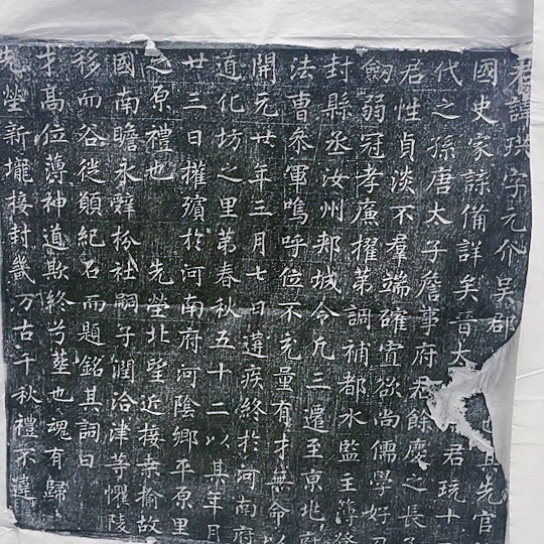 君諱璵字元介吳郡也其先官
國史家諜備詳矣晉太君玩十
代之孫唐太子詹事府君餘慶之長子
君性貞淡不羣端確寡欲尚儒學好
劒弱冠孝廉擢第調補都水監主薄登
封縣丞汝州郟城令凡三遷至京兆府
法曹叅軍嗚呼位不充量有才無命以
開元廿年三月七日遘疾終於河南府
道化坊之里第春秋五十二以其年月
廿三日權殯於河南府河陰鄉平原里
之原禮也先塋北望近接桑榆故
國南瞻永辭枌社嗣子潤洽津等懼陵
移而谷徙顧紀石而題銘其詞曰
才高位薄神道欺終兮塟也魂有歸
先塋新壠接封畿万古千秋禮不違